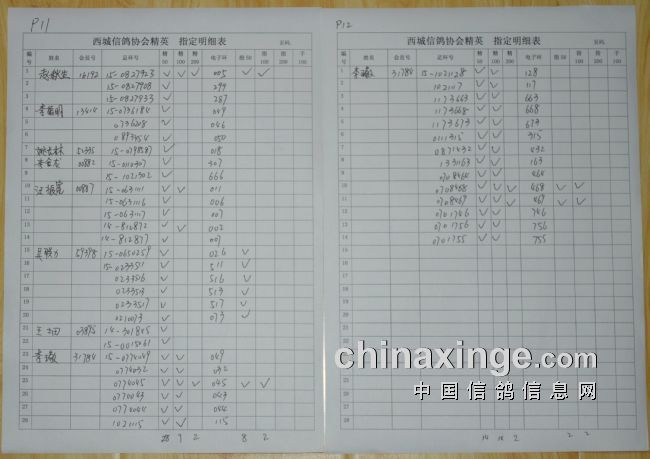 P11
西城信鸽协会精英 指定明细表
页码:
编号 姓名 会员号 总环号 精50 精100 精200 电子环 指50 指100 千100
1 16192 15-0827923 ✓ ✓ ✓ 005 ✓ ✓
2 15-0827908 ✓ 299
3 15-0827933 ✓ 287
4 13414 15-0736184 ✓ 049
5 0736208 ✓ 046
6 0893454 ✓ 050
7 51335 15-0798587 ✓ 018
8 00882 15-0110307 ✓ 307
9 15-1021302 ✓ 666
10 00887 15-063111 ✓ ✓ 011
11 15-063116 ✓ 006
12 15-063117 ✓ 007
13 14-812872 ✓ ✓ 002
14 14-812877 ✓ 001
15 59398 15-0650259 ✓ 026 ✓
16 15-0233511 ✓ 511 ✓
17 0233516 ✓ 516 ✓
18 0233513 ✓ 513 ✓
19 0233517 ✓ 517 ✓
20 0210073 ✓ 073 ✓
21 王 田 03895 14-301845 ✓
22 15-0015061 ✓
23 31784 15-0774049 ✓ ✓ 049
24 0774032 ✓ ✓ 032
25 0774045 ✓ ✓ ✓ 045 ✓ ✓
26 0770043 ✓ ✓ 043
27 0774044 ✓ ✓ 044
28 1021115 ✓ ✓ 115
28 9 2 8 2
P12
西城信鸽协会精英 指定明细表
页码:
编号 姓名 会员号 总环号 精50 精100 精200 电子环 指50 指100 指200 千100
1 31784 15-1021128 ✓ ✓ 128
2 102117 ✓ ✓ 117
3 1173663 ✓ ✓ 663
4 1173668 ✓ ✓ 668
5 1173673 ✓ ✓ 673
6 0111315 ✓ ✓ 315
7 0871432 ✓ ✓ 432
8 1331163 ✓ ✓ 163
9 0708464 ✓ ✓ 464
10 0708468 ✓ ✓ ✓ 468 ✓ ✓
11 0708469 ✓ ✓ ✓ 469 ✓ ✓
12 0701746 ✓ ✓ 746
13 0701756 ✓ ✓ 756
14 0701755 ✓ ✓ 755
14 14 2 2 2
chinaxinge.com
中国信鸽信息网